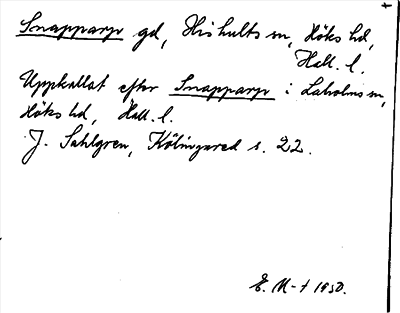 Snapparp gd, Hishults sn, Höks hd,
Hall. l.
Uppkallat efter Snapparp i Laholms sn,
Höks hd, Hall. l.
J. Sahlgren, Kölingared s. 22.
E. M-t 1950.